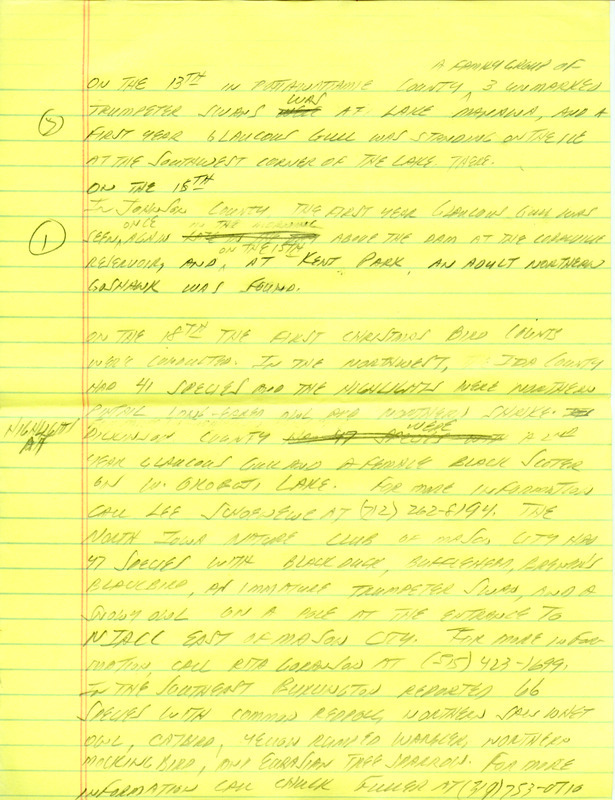 A FAMILY GROUP OF
ON THE 13TH IN POTTAWATTAMIE COUNTY, 3 UNMARKED
TRUMPETER SWANS WAS AT LAKE MANAWA, AND A
FIRST YEAR GLAUCOUS GULL WAS STANDING ON THE ICE
AT THE SOUTHWEST CORNER OF THE LAKE THERE.
ON THE 18TH
IN JOHNSON COUNTY THE FIRST YEAR GLAUCOUS GULL WAS
ONCE
SEEN, AGAIN ABOVE THE DAM AT THE CORALVILLE
ON THE 15TH
RESERVOIR, AND, AT KENT PARK, AN ADULT NORTHERN
GOSHAWK WAS FOUND.
ON THE 18TH THE FIRST CHRISTMAS BIRD COUNTS
WERE CONDUCTED. IN THE NORTHWEST, IDA COUNTY
HAD 41 SPECIES AND THE HIGHLIGHTS WERE NORTHERN
PINTAIL LONG-EARED OWL AND NORTHERN SHRIKE.
HIGHLIGHTS AT
DICKINSON COUNTY WERE A 2ND
YEAR GLAUCOUS GULL AND A FEMALE BLACK SCOTER
ON W. OKOBOJI LAKE. FOR MORE INFORMATION
CALL LEE AT (712) 262-8194. THE
NORTH IOWA NATURE CLUB OF MASON CITY HAD
47 SPECIES WITH BLACK DUCK, BUFFLEHEAD, BREWER'S
BLACKBIRD, AN IMMATURE TRUMPETER SWAN, AND A
SNOWY OWL ON A POLE AT THE ENTRANCE TO
NIACC EAST OF MASON CITY. FOR MORE INFOR-
MATION, CALL RITA GORANSON AT (515) 423-1699.
IN THE SOUTHEAST BURLINGTON REPORTED 66
SPECIES WITH COMMON REDPOLL, NORTHERN SAW WHET
OWL, CATBIRD, YELLOW RUMPED WARBLER, NORTHERN
MOCKINGBIRD, AND EURASIAN TREE SPARROW. FOR MORE
INFORMATION CALL CHUCK FULLER AT (319) 753-0710